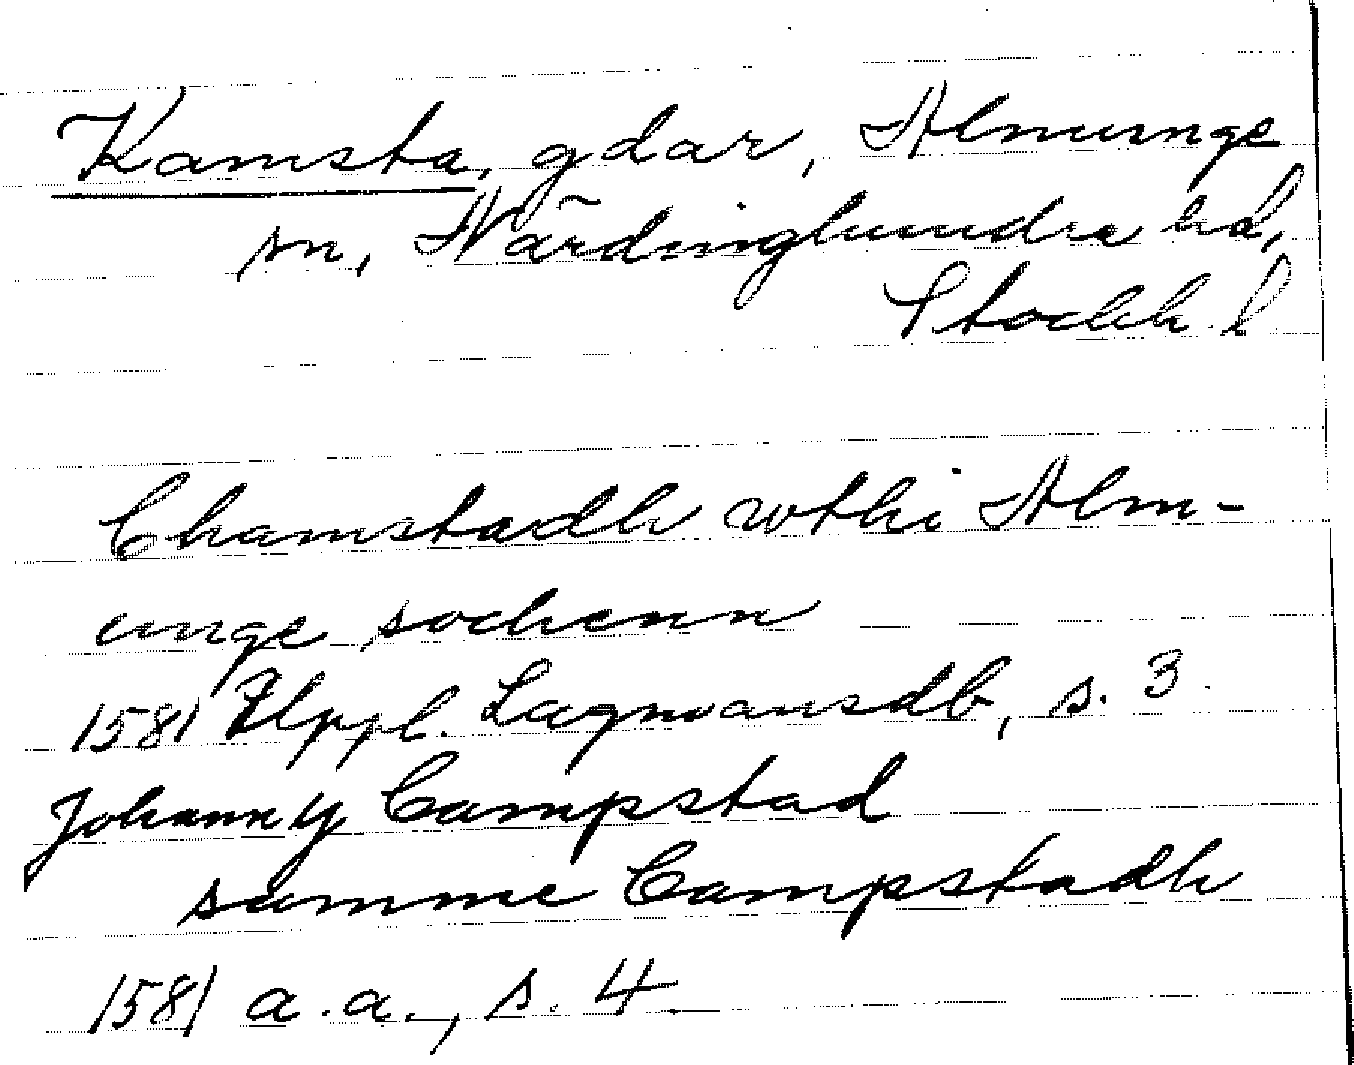 Kamsta, gdar, Almunge
sn, Närdinghundra hd,
Stockh. l
Chamstadh wthi Alm-
unge sochenn
1581 Uppl. Lagmansdb, s. 3.
Johann y Campstad
samme Campstadh
1581 a.a., s. 4.